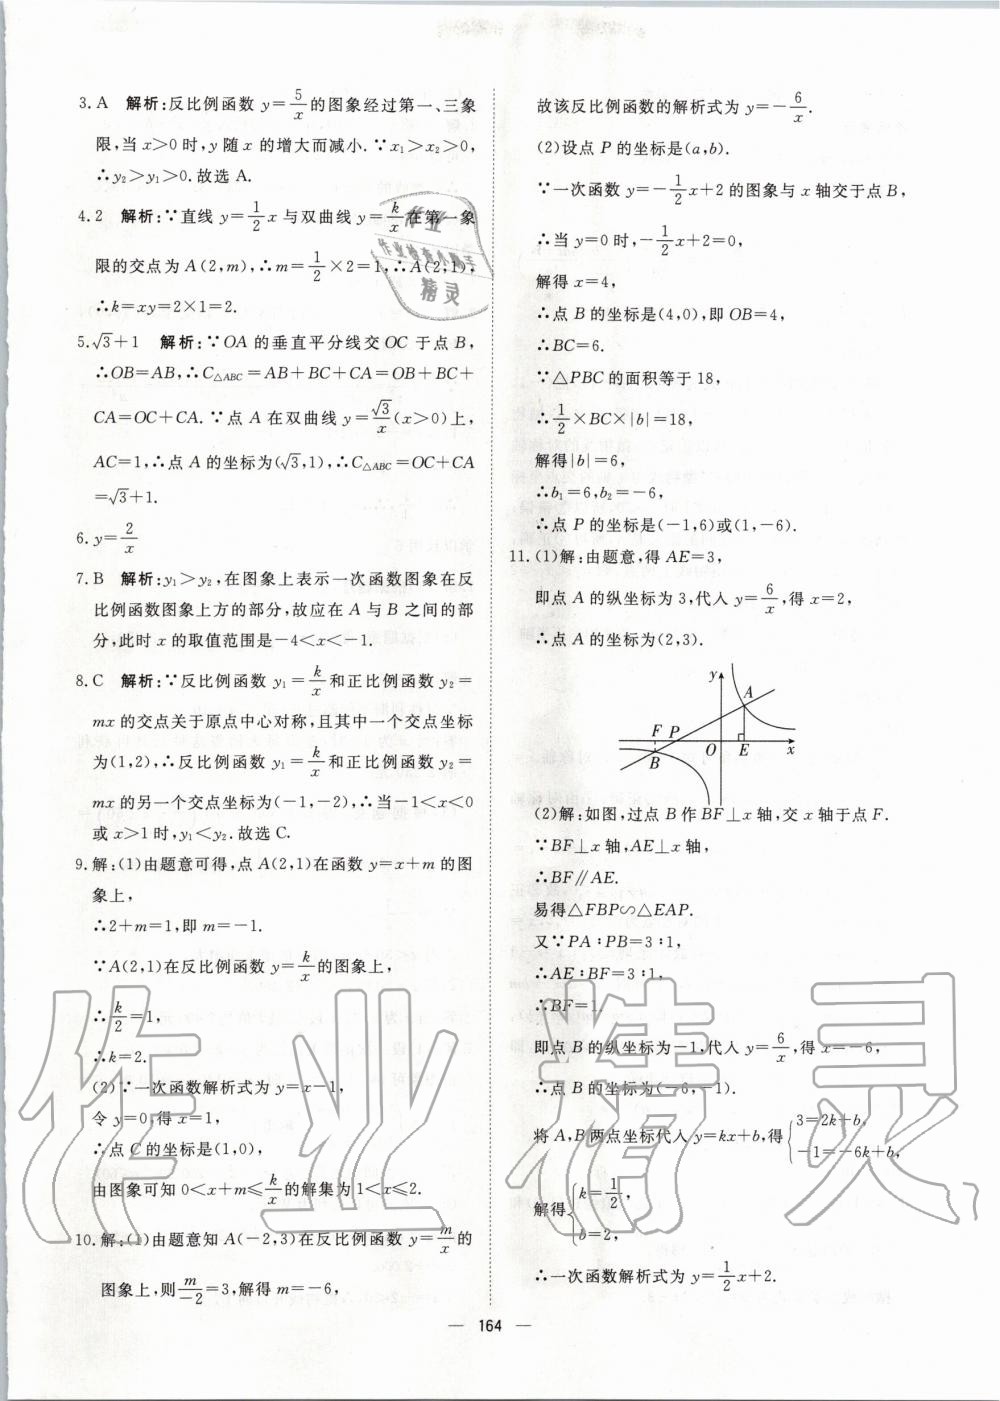 3. A 解析:反比例函数 y=5/x 的图象经过第一、三象
限,当 x>0 时,y 随 x 的增大而减小.∵x₁>x₂>0,
∴y₂>y₁>0.故选 A.
4. 2 解析:∵直线 y=1/2 x 与双曲线 y=k/x 在第一象
限的交点为 A(2,m),∴m=1/2×2=1,∴A(2,1),
∴k=xy=2×1=2.
5. √3+1 解析:∵OA 的垂直平分线交 OC 于点 B,
∴OB=AB,∴C△ABC=AB+BC+CA=OB+BC+
CA=OC+CA.∵点 A 在双曲线 y=√3/x(x>0)上,
AC=1,∴点 A 的坐标为(√3,1),∴C△ABC=OC+CA
=√3+1.
6. y=2/x
7. B 解析:y₁>y₂,在图象上表示一次函数图象在反
比例函数图象上方的部分,故应在 A 与 B 之间的部
分,此时 x 的取值范围是-4<x<-1.
8. C 解析:∵反比例函数 y₁=k/x 和正比例函数 y₂=
mx 的交点关于原点中心对称,且其中一个交点坐标
为(1,2),∴反比例函数 y₁=k/x 和正比例函数 y₂=
mx 的另一个交点坐标为(-1,-2),∴当-1<x<0
或 x>1 时,y₁<y₂.故选 C.
9. 解:(1)由题意可得,点 A(2,1)在函数 y=x+m 的图
象上,
∴2+m=1,即 m=-1.
∵A(2,1)在反比例函数 y=k/x 的图象上,
∴k/2=1,
∴k=2.
(2)∵一次函数解析式为 y=x-1,
令 y=0,得 x=1,
∴点 C 的坐标是(1,0),
由图象可知 0<x+m≤k/x 的解集为 1<x≤2.
10. 解:(1)由题意知 A(-2,3)在反比例函数 y=m/x 的
图象上,则 m/-2=3,解得 m=-6,
故该反比例函数的解析式为 y=-6/x.
(2)设点 P 的坐标是(a,b).
∵一次函数 y=-1/2 x+2 的图象与 x 轴交于点 B,
∴当 y=0 时,-1/2 x+2=0,
解得 x=4,
∴点 B 的坐标是(4,0),即 OB=4,
∴BC=6.
∵△PBC 的面积等于 18,
∴1/2×BC×|b|=18,
解得|b|=6,
∴b₁=6,b₂=-6,
∴点 P 的坐标是(-1,6)或(1,-6).
11. (1)解:由题意,得 AE=3,
即点 A 的纵坐标为 3,代入 y=6/x,得 x=2,
∴点 A 的坐标为(2,3).
y
A
F P
O E x
B
(2)解:如图,过点 B 作 BF⊥x 轴,交 x 轴于点 F.
∵BF⊥x 轴,AE⊥x 轴,
∴BF∥AE.
易得△FBP∽△EAP.
又∵PA∶PB=3∶1,
∴AE∶BF=3∶1,
∴BF=1,
即点 B 的纵坐标为-1,代入 y=6/x,得 x=-6,
∴点 B 的坐标为(-6,-1).
将 A,B 两点坐标代入 y=kx+b,得{3=2k+b,
-1=-6k+b,
解得{k=1/2,
b=2,
∴一次函数解析式为 y=1/2 x+2.
— 164 —
作业
作业检查小助手
精灵
作业精灵